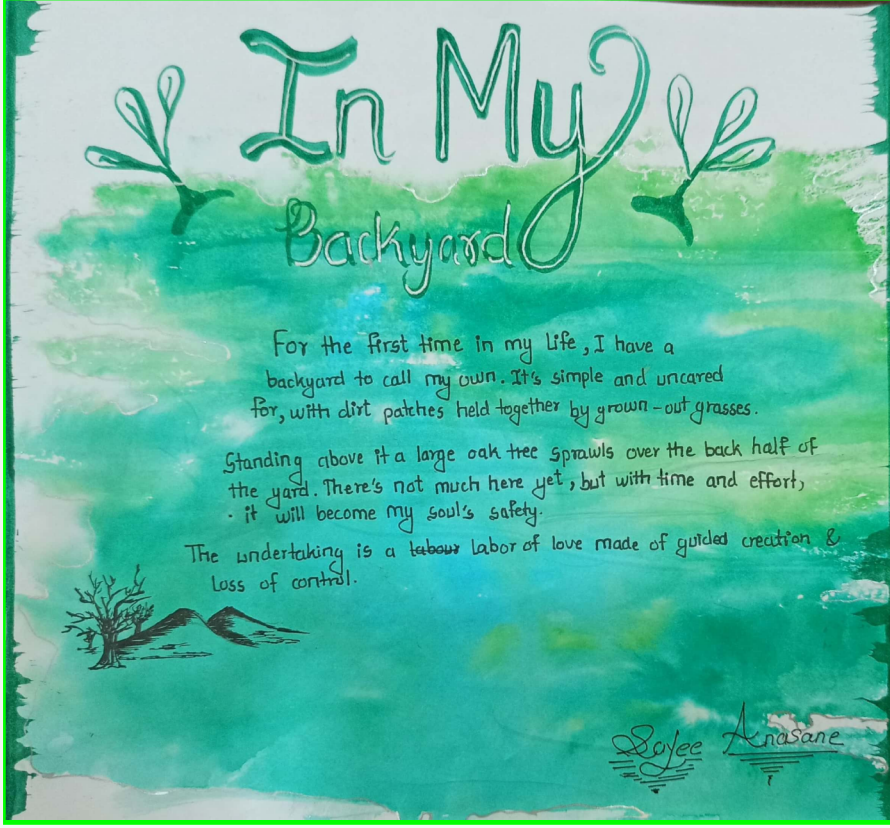 In My
Backyard
For the first time in my life, I have a
backyard to call my own. It's simple and uncared
for, with dirt patches held together by grown-out grasses.
Standing above it a large oak tree sprawls over the back half of
the yard. There's not much here yet, but with time and effort,
it will become my soul's safety.
The undertaking is a labour labor of love made of guided creation &
loss of control.
Sojee Anasane